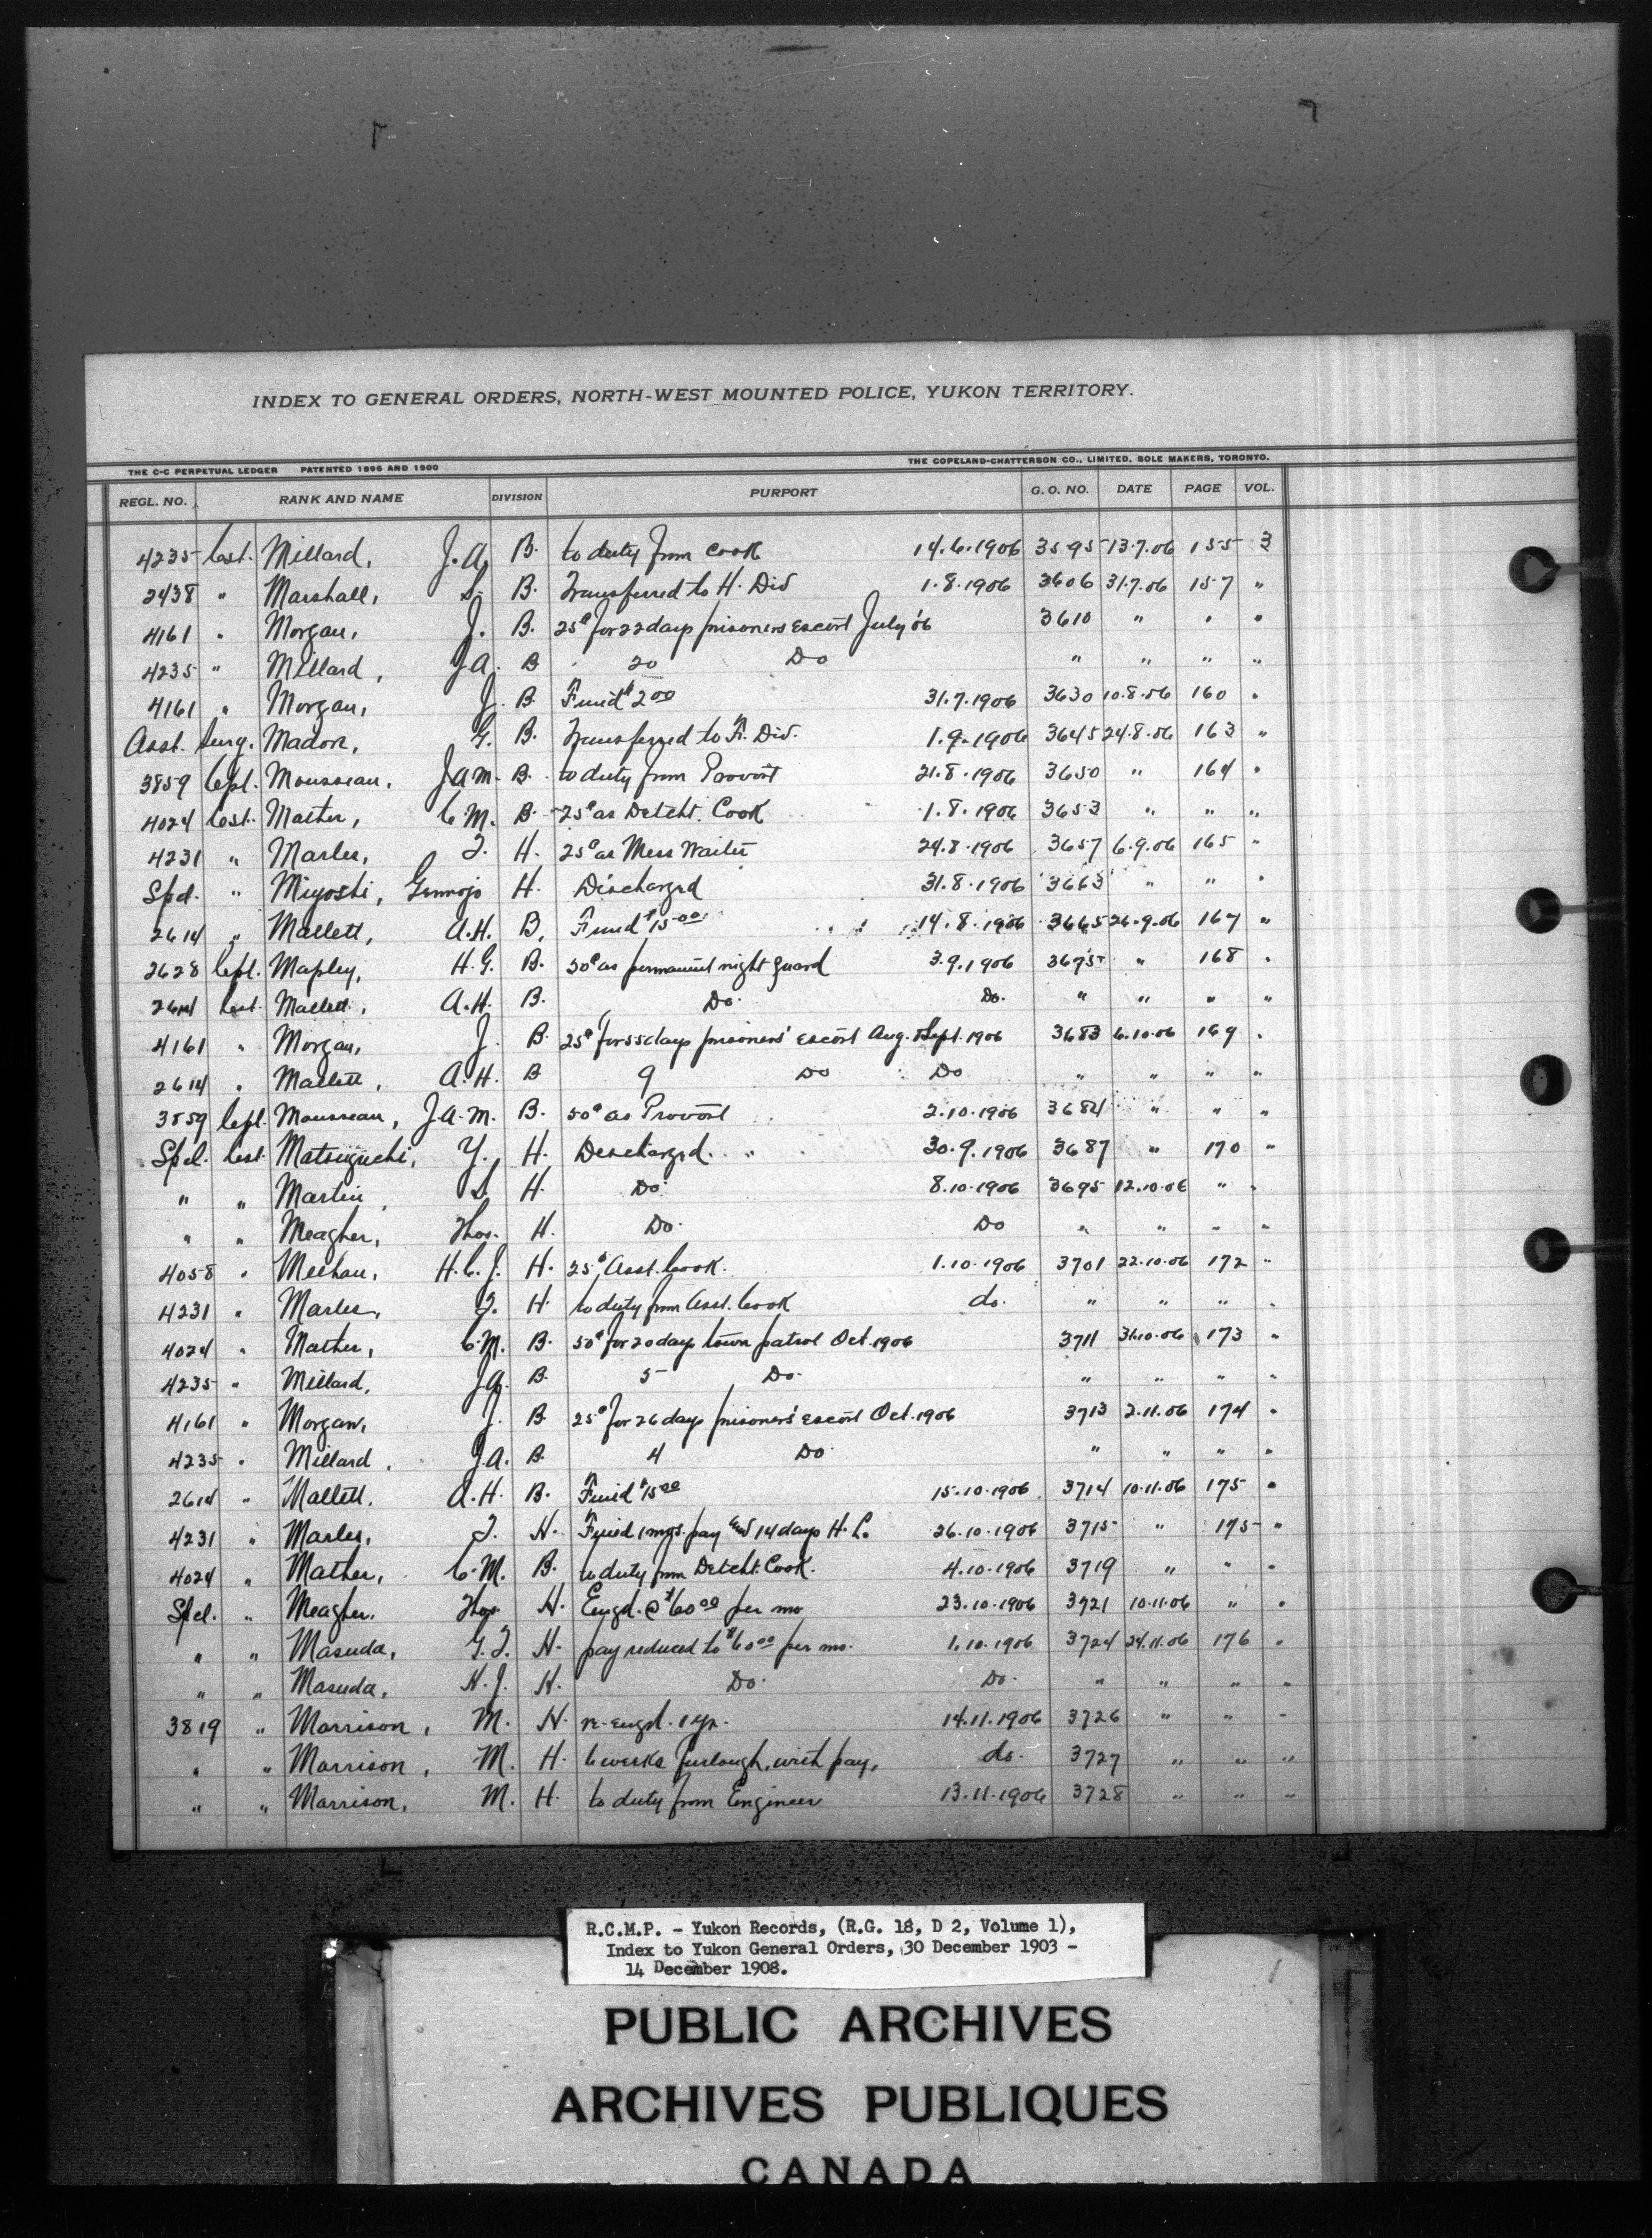 INDEX TO GENERAL ORDERS, NORTH-WEST MOUNTED POLICE, YUKON TERRITORY.
THE C-C PERPETUAL LEDGER PATENTED 1896 AND 1900 THE COPELAND-CHATTERSON CO., LIMITED, SOLE MAKERS, TORONTO.
REGL. NO. RANK AND NAME DIVISION PURPORT G. O. NO. DATE PAGE VOL.
4235 Cost. Millard, J.A. B. to duty from Cook 14.6.1906 3595 13.7.06 155 3
2438 " Marshall, S. B. Transferred to H. Div 1.8.1906 3606 31.7.06 157 "
4161 " Morgan, J. B. 25¢ for 22 days prisoners escort July '06 3610 " " "
4235 " Millard, J.A. B 20 Do " " " "
4161 " Morgan, J. B. Fined $2.00 31.7.1906 3630 10.8.06 160 "
Asst. Surg. Madore, G. B. Transferred to Div. 1.9.1906 3645 24.8.06 163 "
3859 Cpl. Mousseau, J.A.M. B. to duty from Provost 21.8.1906 3650 " 164 "
4024 Cost. Mather, C.M. B. 25¢ as Detcht. Cook 1.8.1906 3653 " " "
4231 " Marler, T. H. 25¢ as Mess Waiter 24.8.1906 3657 6.9.06 165 "
Spcl. " Miyoshi, Gennojo H. Discharged 31.8.1906 3663 " " "
2614 " Mallett, A.H. B. Fined $15.00 14.8.1906 3665 26.9.06 167 "
2628 Cpl. Mapley, H.G. B. 50¢ as permanent night guard 3.9.1906 3675 " 168 "
2614 Cost. Mallett, A.H. B. Do. Do. " " " "
4161 " Morgan, J. B. 25¢ for 55 days prisoners' escort Aug. & Sept. 1906 3683 6.10.06 169 "
2614 " Mallett, A.H. B 9 Do Do " " " "
3859 Cpl. Mousseau, J.A.M. B. 50¢ as Provost 2.10.1906 3684 " " "
Spcl. Cost. Matsuguchi, Y. H. Discharged. 30.9.1906 3687 " 170 "
" " Martin, S. H. Do. 8.10.1906 3695 12.10.06 " "
" " Meagher, Thos. H. Do. Do " " " "
4058 " Meehan, H.C.J. H. 25¢ Asst. Cook. 1.10.1906 3701 22.10.06 172 "
4231 " Marler, T. H. to duty from Asst. Cook do. " " " "
4024 " Mather, C.M. B. 50¢ for 20 days town patrol Oct. 1906 3711 31.10.06 173 "
4235 " Millard, J.A. B. 5 Do. " " " "
4161 " Morgan, J. B. 25¢ for 26 days prisoners' escort Oct. 1906 3713 2.11.06 174 "
4235 " Millard, J.A. B. 4 Do " " " "
2614 " Mallett, A.H. B. Fined $15.00 15.10.1906 3714 10.11.06 175 "
4231 " Marler, T. H. Fined 1 mos. pay and 14 days H.L. 26.10.1906 3715 " 175 "
4024 " Mather, C.M. B. to duty from Detcht. Cook. 4.10.1906 3719 " " "
Spcl. " Meagher, Thos. H. Engd. @ $60.00 per mo 23.10.1906 3721 10.11.06 " "
" " Masuda, G.T. H. pay reduced to $60.00 per mo. 1.10.1906 3724 24.11.06 176 "
" " Masuda, K.J. H. Do. Do. " " " "
3819 " Morrison, M. H. re-engd. 1 yr. 14.11.1906 3726 " " "
" " Morrison, M. H. 6 weeks furlough, with pay, do. 3727 " " "
" " Morrison, M. H. to duty from Engineer 13.11.1906 3728 " " "
R.C.M.P. - Yukon Records, (R.G. 18, D 2, Volume 1),
Index to Yukon General Orders, 30 December 1903 -
14 December 1908.
PUBLIC ARCHIVES
ARCHIVES PUBLIQUES
CANADA